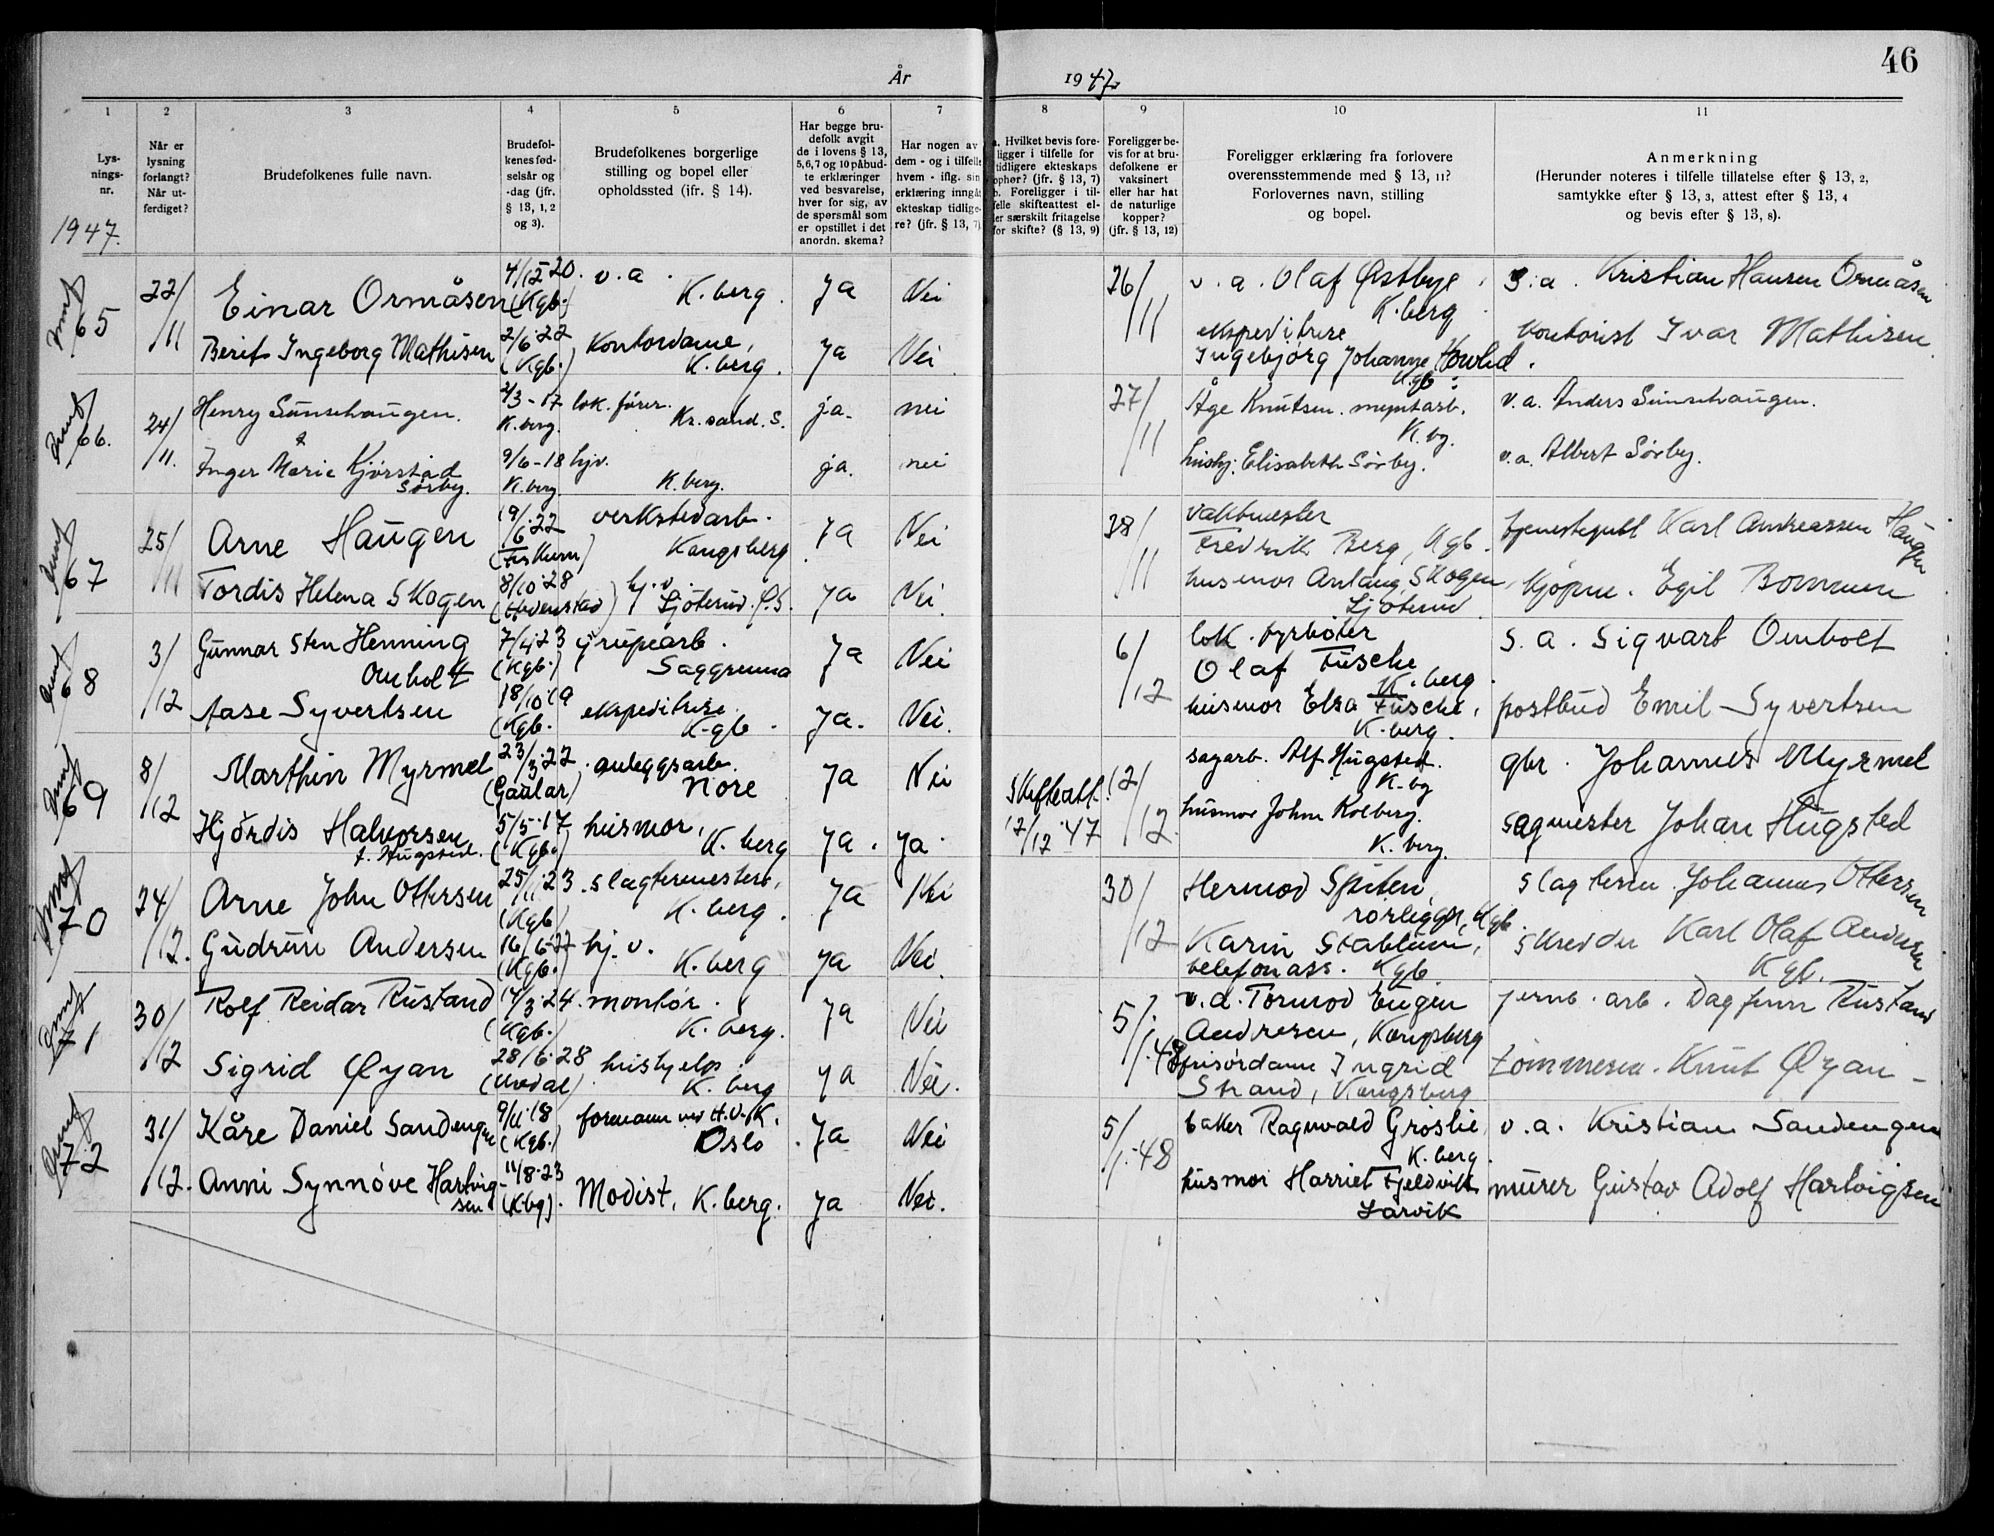 46
År
1947.
1
2
3
4
5
6
7
8
9
10
11
Lys-
nings-
nr.
Når er
lysning
forlangt?
Når ut-
ferdiget?
Brudefolkenes fulle navn.
Brudefol-
kenes fød-
selsår og
-dag (jfr.
§ 13, 1, 2
og 3).
Brudefolkenes borgerlige
stilling og bopel eller
opholdssted (jfr. § 14).
Har begge bru-
defolk avgit
de i lovens § 13,
5,6,7 og 10 påbud-
te erklæringer
ved besvarelse,
hver for sig, av
de spørsmål som
er opstillet i det
anordn. skema?
Har nogen av
dem - og i tilfelle
hvem - iflg. sin
erklæring inngått
ekteskap tidlige-
re? (jfr. § 13, 7)
a. Hvilket bevis fore-
ligger i tilfelle for
tidligere ekteskaps
ophør? (jfr. § 13, 7)
b. Foreligger i til-
felle skifteattest el-
ler særskilt fritagelse
for skifte? (§ 13, 9)
Foreligger be-
vis for at bru-
defolkene er
vaksinert
eller har hat
de naturlige
kopper?
(jfr. § 13, 12)
Foreligger erklæring fra forlovere
overensstemmende med § 13, 11?
Forlovernes navn, stilling
og bopel.
Anmerkning
(Herunder noteres i tilfelle tillatelse efter § 13, 2,
samtykke efter § 13, 3, attest efter § 13, 4
og bevis efter § 13, 8).
1947.
65
22/11
Einar Ormåsen
4/12-20. (Kgb.)
v.a. K.berg.
Ja
Nei
26/11
v.a. Olaf Østbye K.berg
s.a. Kristian Hansen Ormåsen
Berit Ingeborg Mathisen
2/6-22 (Kgb.)
Kontordame, K.berg.
Ja
Nei
ekspeditrise
Ingebjørg Johanne
Kgb.
Kontorist Ivar Mathisen
66.
24/11.
Henry Sunnehaugen.
2/3-17 K.berg.
lok.fører. Kr.sand.S.
ja.
nei
27/11
Åge Knutsen. myntarb. K.bg.
v.a. Anders Sunnehaugen.
&
Inger Marie Kjørstad
Sørby.
9/6-18 K.berg.
hjv. K.berg.
ja.
nei
hushj. Elisabeth Sørby.
v.a. Albert Sørby.
67
25/11
Arne Haugen
19/6-22 (Fiskum)
verkstedarb. Kongsberg
Ja
Nei
28/11
vaktmester
Fredrik Berg, Kgb.
Karl Andreassen Haugen
Tordis Helena Skogen
8/10-28 (Hedenstad)
hj.v. Ljøterud. f.S.
Ja
Nei
husmor Aslaug Skogen,
Ljøterud
kjøpm. Egil Bommen
68
3/12
Gunnar Sten Henning
Omholt
7/4-23 (Kgb.)
grupearb. Saggrenna
Ja
Nei
6/12
lok.fyrbøter
Olaf Fusche K.berg
s.a. Sigvart Omholt
Aase Syvertsen
18/10-19 (Kgb.
ekspeditrise. Kgb.
Ja.
Nei.
husmor Elsa Fusche, K.berg.
postbud Emil Syvertsen
69
8/12
Marthin Myrmel
23/3-22 (Gaular)
anleggsarb. Nore
Ja
Nei
Skifteatt.
12/12-47
12/12.
sagarb. Alf Hugsted. K.bg
gbr. Johannes Myrmel
Hjördis Halvorsen
f. Hugsted.
5/5-17 (Kgb.)
husmor, K.berg
Ja.
Ja.
husmor Johne Kolberg. K.berg.
sagmester Johan Hugsted
70
24/12.
Arne John Ottersen
25/11-23 (Kgb)
slagtermester, K.berg.
Ja
Nei
30/12
Hermod Spiten,
rørlegger, Kgb.
slagterm. Johannes Ottersen
Gudrun Andersen
16/6-22 (Kgb.)
hj.v. K.berg
Ja
Nei.
Karin Stablum,
telefonass. Kgb
skredder Karl Olaf Andersen
Kgb.
71
30/12
Rolf Reidar Rustand
17/3-24. (Kgb.)
montør. K.berg.
Ja
Nei
5/1.48
v.a. Tormod Eugen
Andresen, Kongsberg
jernb.arb. Dagfinn Rustand
Sigrid Øyan
28/6-28 (Uvdal)
hushjelp. K.berg
Ja
Nei.
frisørdame Ingrid
Strand, Kongsberg
tømmerm. Knut Øyan
72
31/12.
Kåre Daniel Sandengen
9/11-18 (Kgb.)
formann ved H.V.K. Oslo.
Ja
Nei
5/1.-48
baker Ragnvald Grøslie, K.berg.
v.a. Kristian Sandengen
Anni Synnøve Hartvig-
sen
11/8-23 (K.bg).
Modist, K.berg.
Ja
Nei.
husmor Harriet Fjeldvik
Larvik
murer Gustav Adolf Hartvigsen